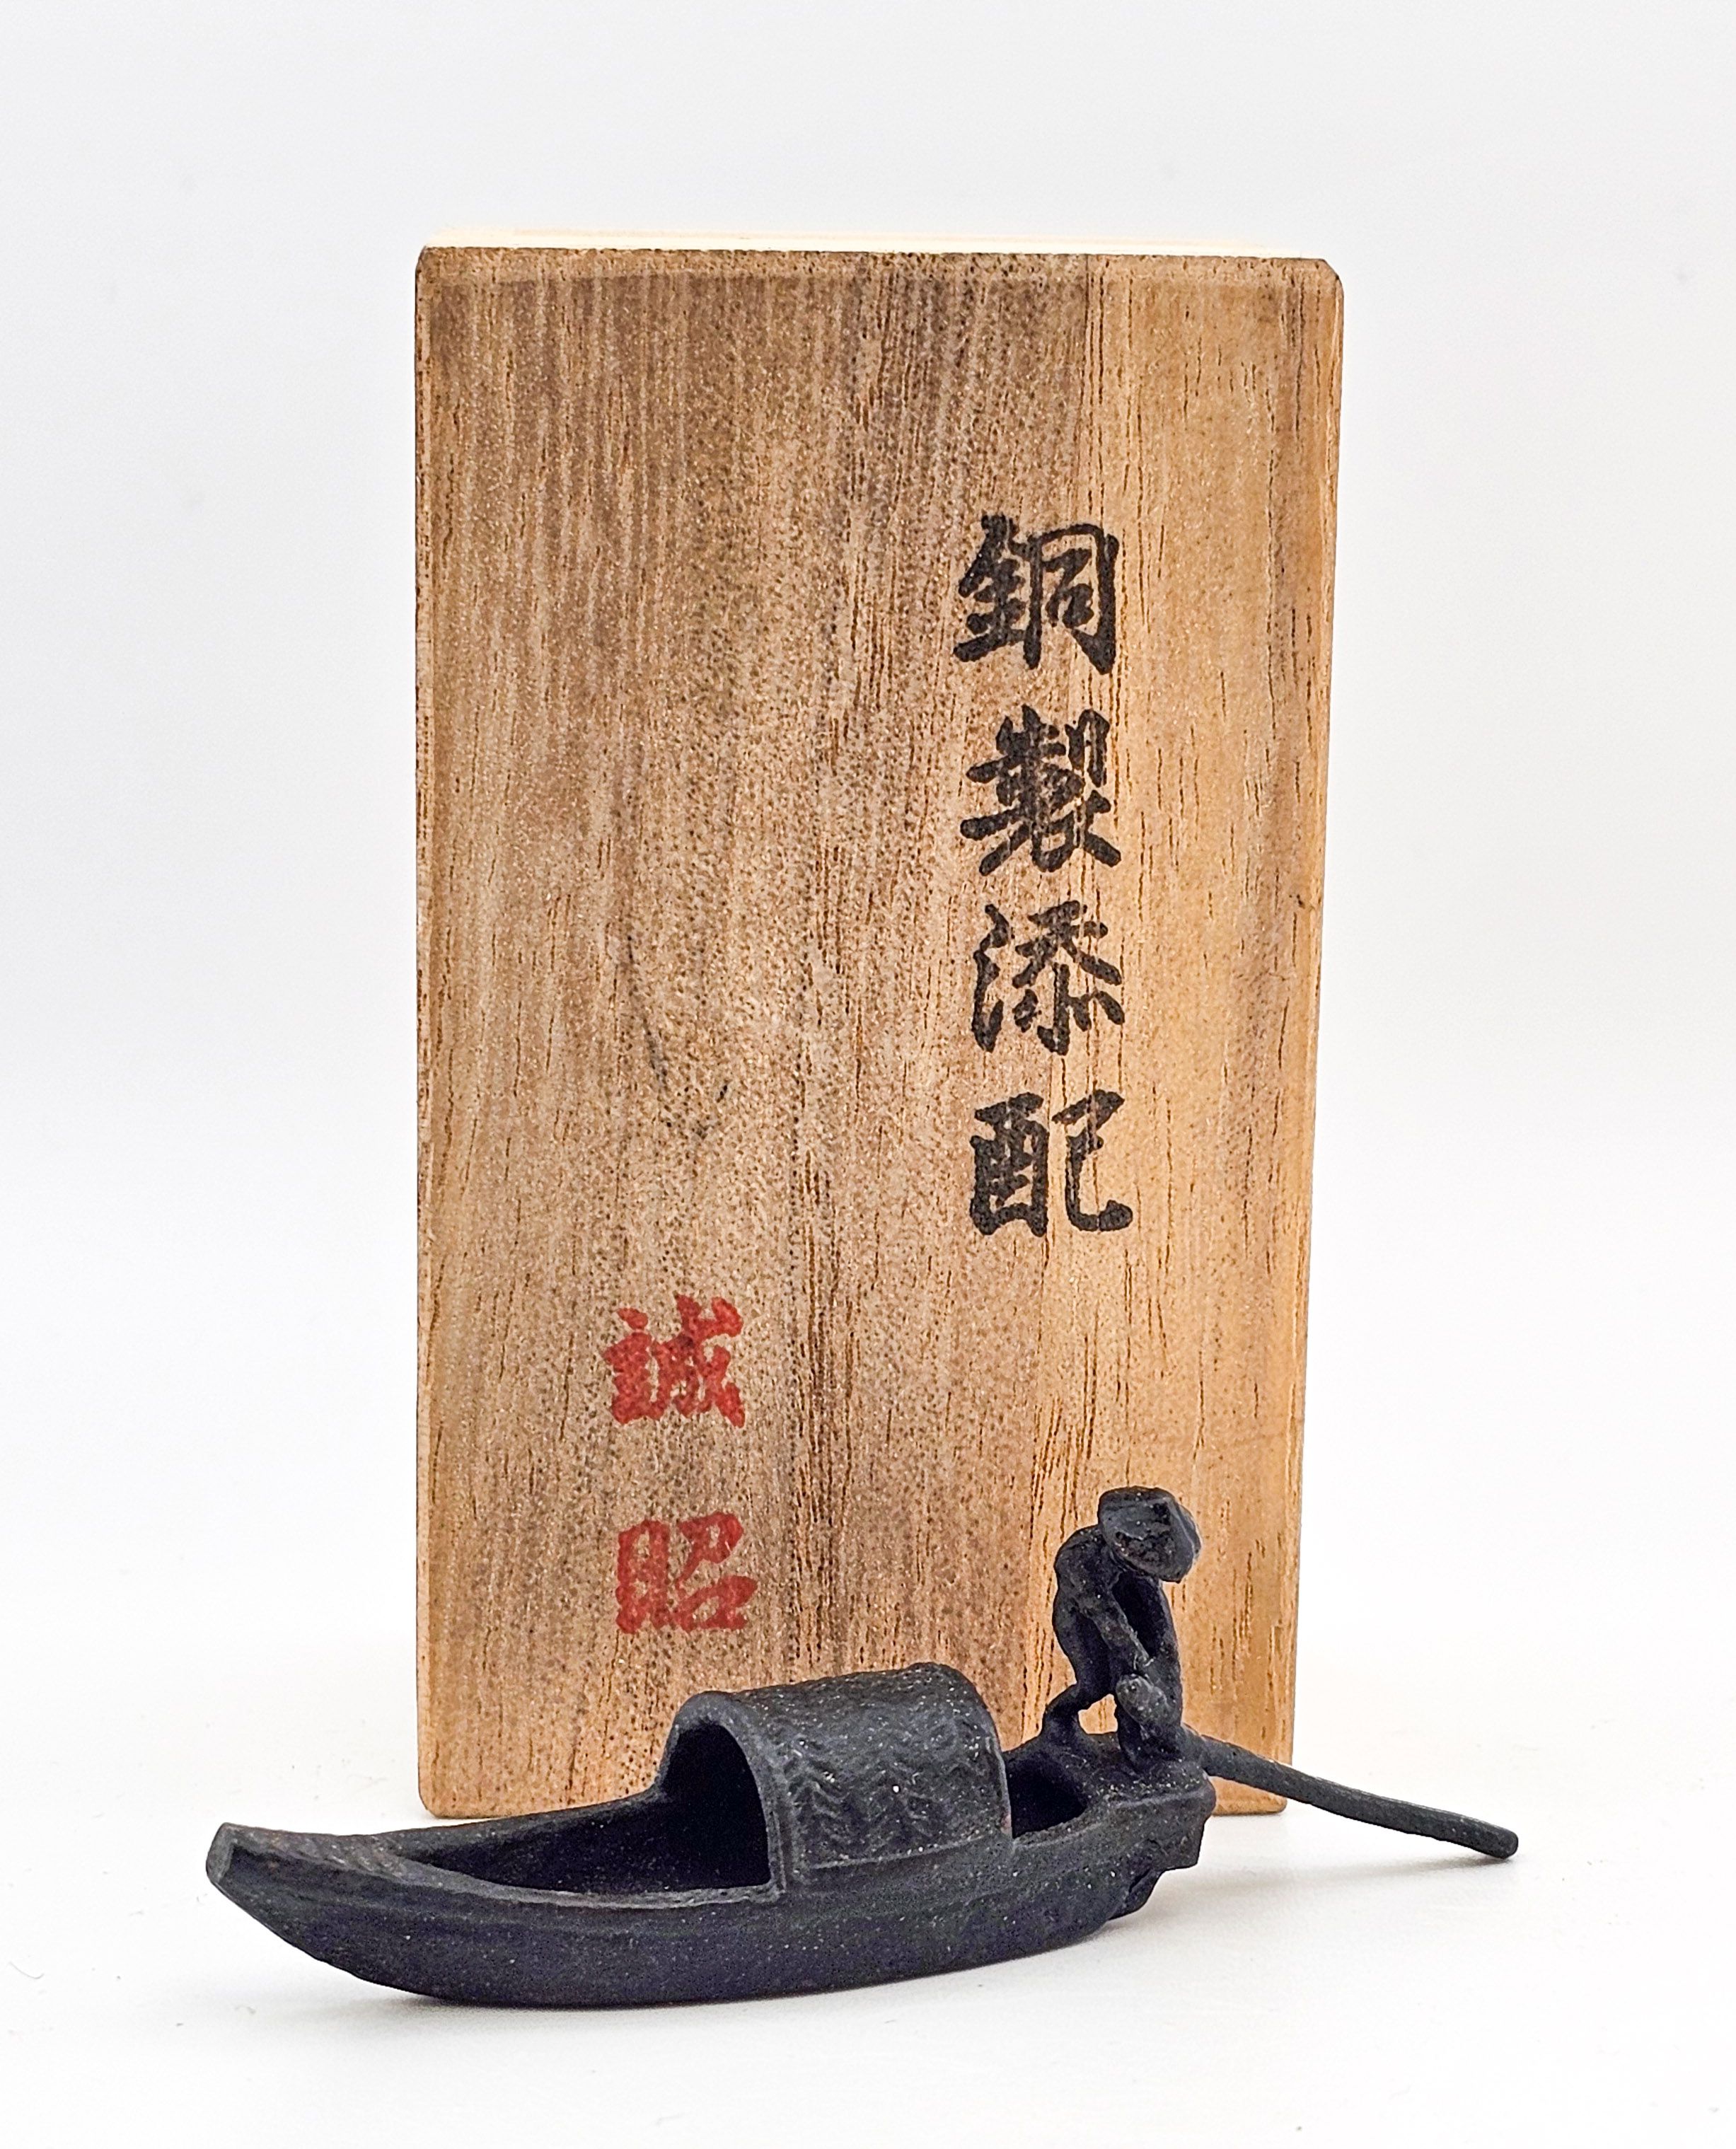 銅製添配
誠昭